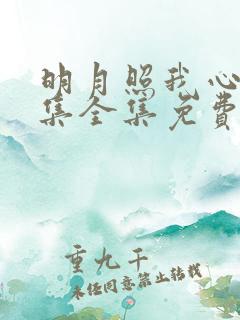 明月照我心
集全集免费
重九千
未经同意禁止转载